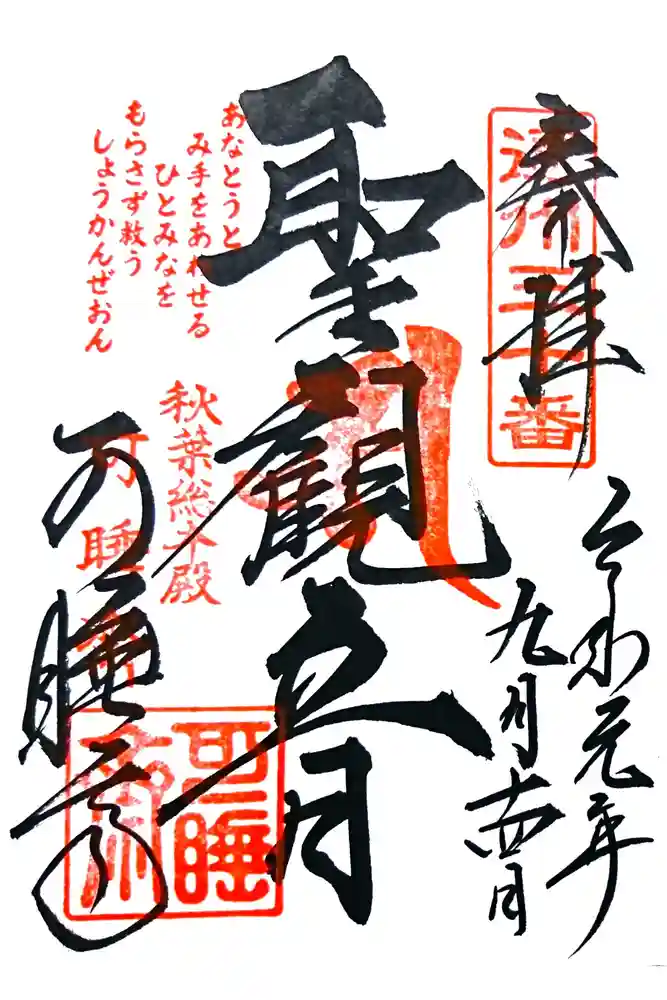 奉拝
令和元年
九月十四日
聖觀音
あなとうと
み手をあわせる
ひとみなを
もらさず救う
しょうかんぜおん
秋葉総本殿
可睡斎
可睡齋